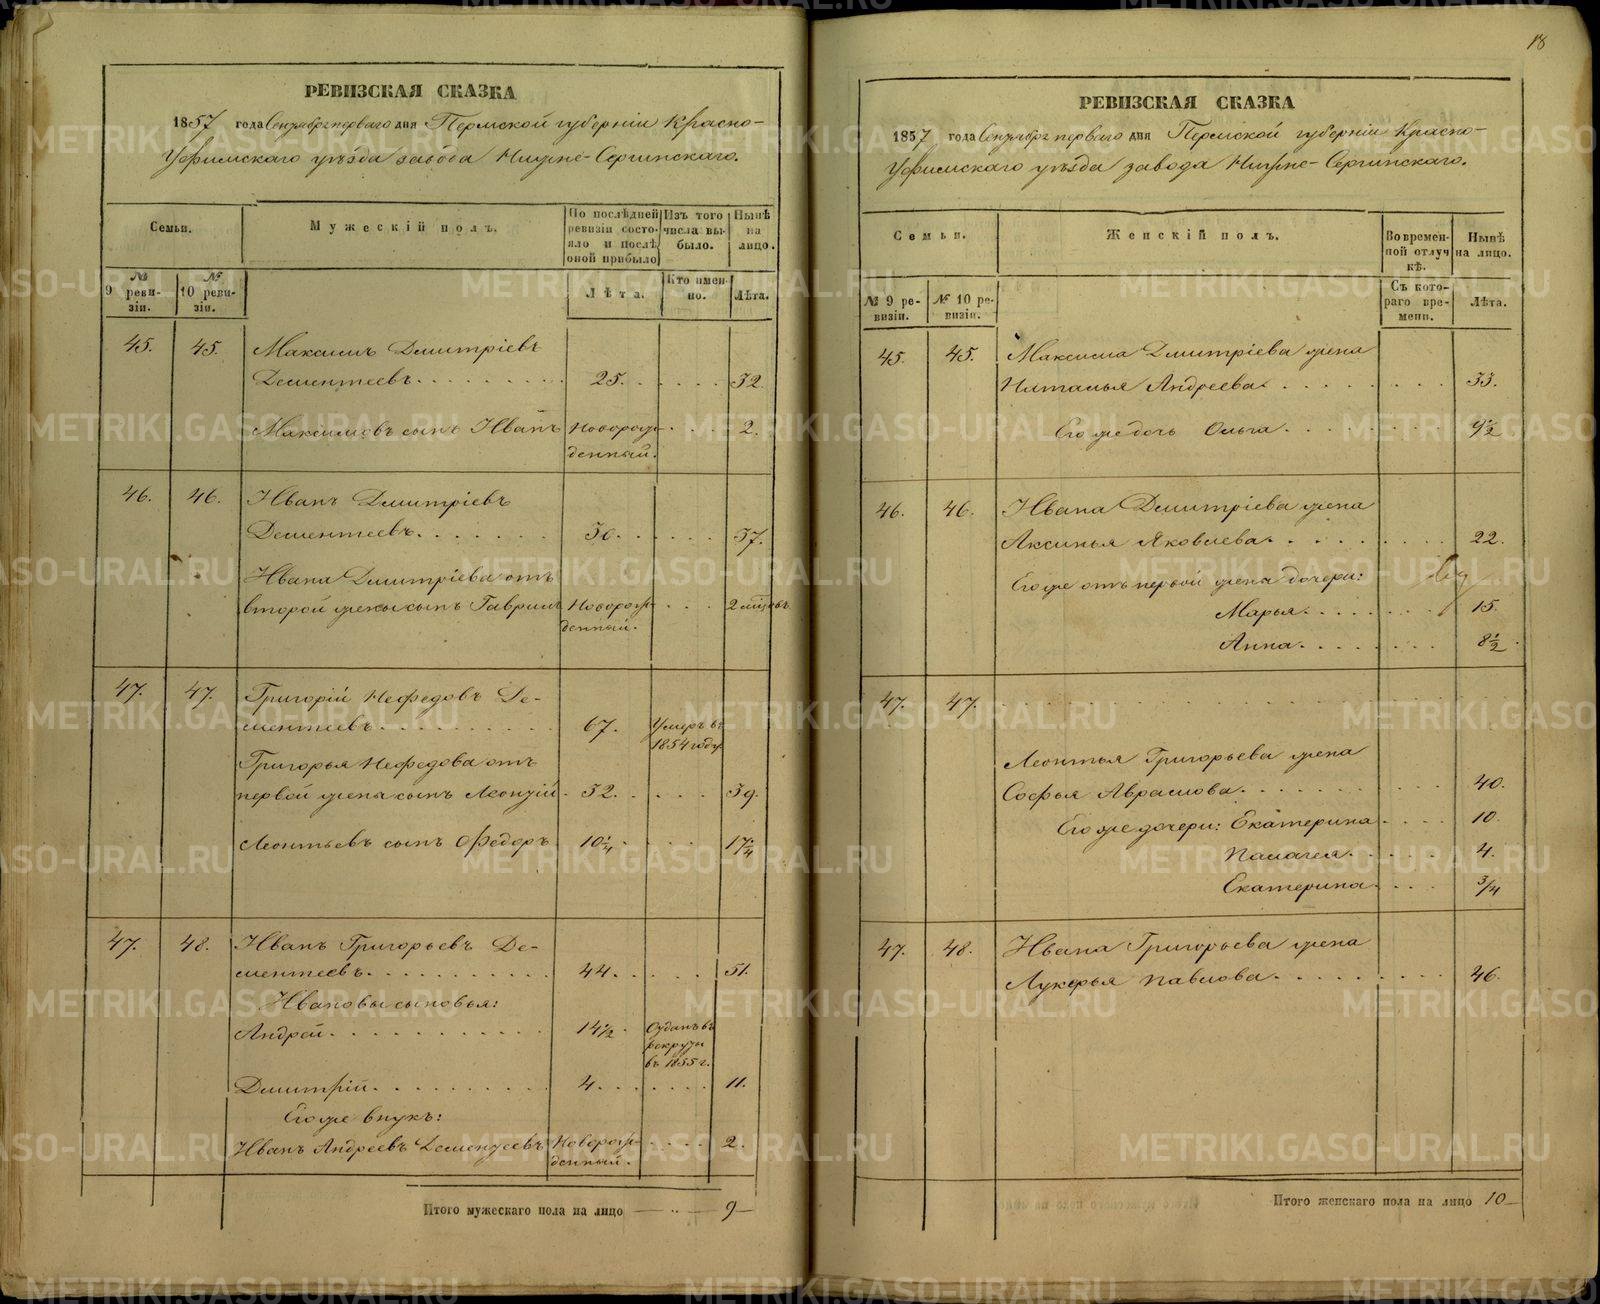 РЕВИЗСКАЯ СКАЗКА
1857 года Сентября первого дня Пермской губерніи Красно-
Уфимскаго уѣзда завода Нижне-Сергинскаго.
Семьи.
Мужескій полъ.
По послѣдней ревизіи состояло и послѣ оной прибыло
Изъ того числа выбыло.
Нынѣ на лицо.
№ 9 ревизіи.
№ 10 ревизіи.
Лѣта.
Кто именно.
Лѣта.
45. 45. Максимъ Дмитріевъ
Дементеевъ. 25. 32
Максимовъ сынъ Иванъ Новорож- 2.
денный.
46. 46. Иванъ Дмитріевъ
Дементеевъ. 30. 37.
Ивана Дмитріева отъ
второй жены сынъ Гавриилъ Новорож- 2 мцовъ
денный.
47. 47. Григорій Нефедовъ Де-
ментеевъ. 67. Умеръ въ
1854 году
Григорья Нефедова отъ
первой жены сынъ Леонтій 32. 39.
Леонтьевъ сынъ Ѳедоръ 10¼ 17¼
47. 48. Иванъ Григорьевъ Де-
ментеевъ. 44. 51.
Ивановы сыновья:
Андрей. 14½ Отданъ въ
рекруты
въ 1855 г.
Дмитрій. 4. 11.
Его же внукъ:
Иванъ Андреевъ Дементеевъ Новорож- 2.
денный.
Итого мужескаго пола на лицо 9
18
РЕВИЗСКАЯ СКАЗКА
1857 года Сентября первого дня Пермской губерніи Красно-
Уфимскаго уѣзда завода Нижне-Сергинскаго.
Семьи.
Женскій полъ.
Во временной отлучкѣ.
Нынѣ на лицо.
№ 9 ревизіи.
№ 10 ревизіи.
Съ котораго времени.
Лѣта.
45. 45. Максима Дмитріева жена
Наталья Андреева. 33.
Его же дочь Ольга. 9½
46. 46. Ивана Дмитріева жена
Аксинья Яковлева. 22.
Его же отъ первой жены дочери:
Марья. 15.
Анна. 8½
47. 47.
Леонтья Григорьева жена
Софья Аврамова. 40.
Его же дочери: Екатерина 10.
Палагея. 4.
Екатерина ¾
47. 48. Ивана Григорьева жена
Лукерья Павлова. 46.
Итого женскаго пола на лицо 10
METRIKI.GASO-URAL.RU